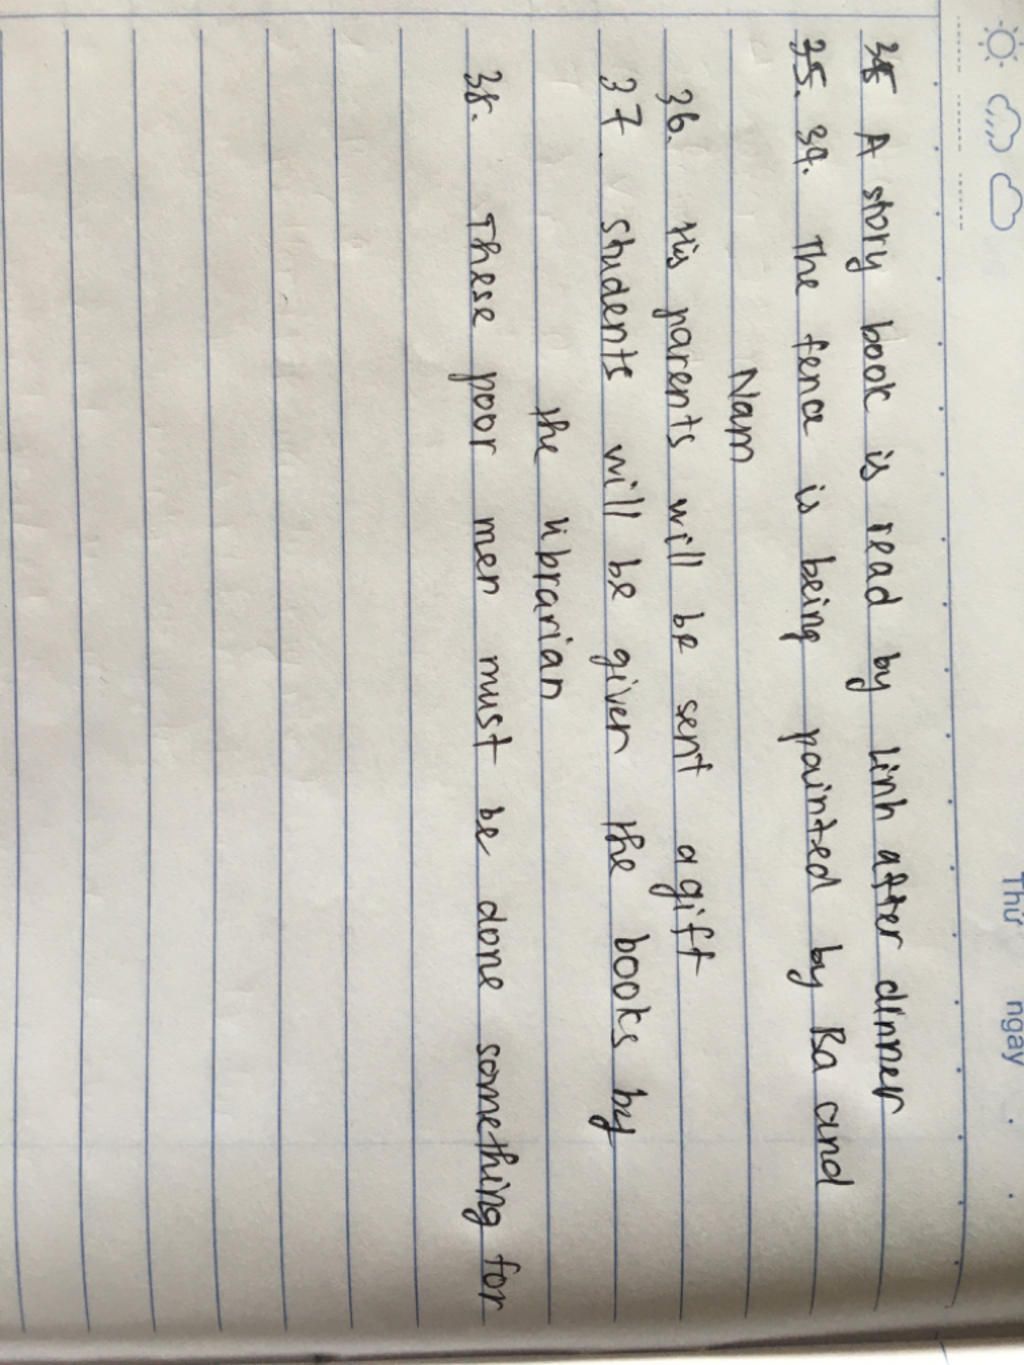 Thứ ngày
35 A story book is read by Linh after dinner
35. 34. The fence is being painted by Ba and
Nam
36. His parents will be sent a gift
37. students will be given the books by
the librarian
38. These poor men must be done something for